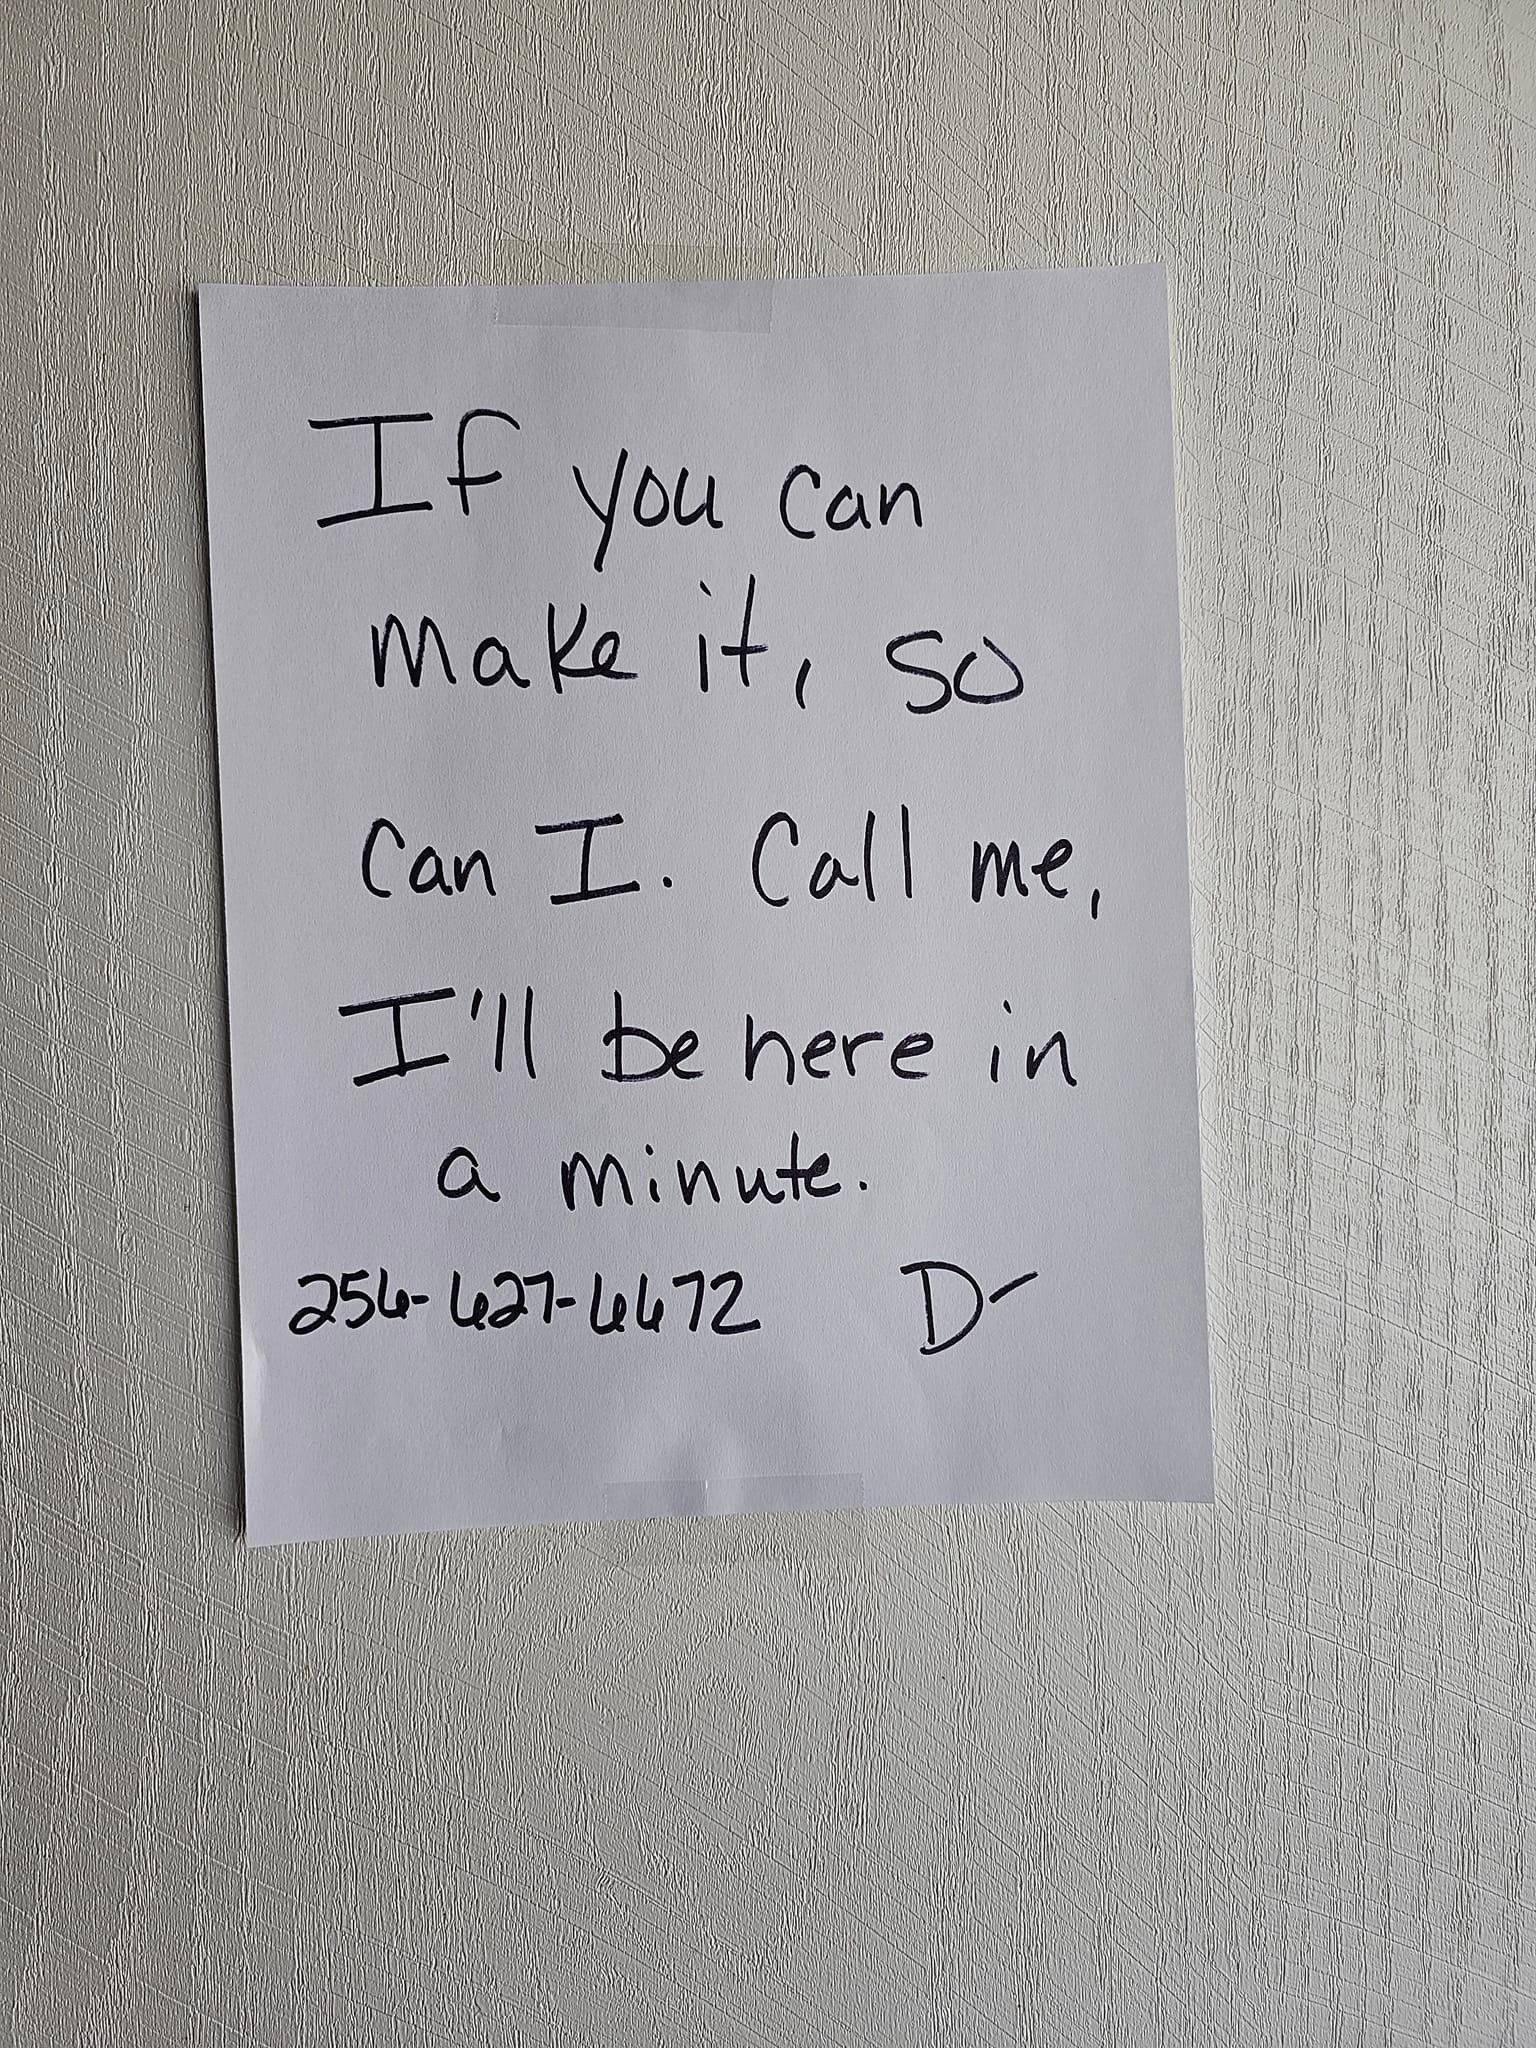 If you can
make it, so
can I. Call me,
I'll be here in
a minute.
256-627-6672 D-